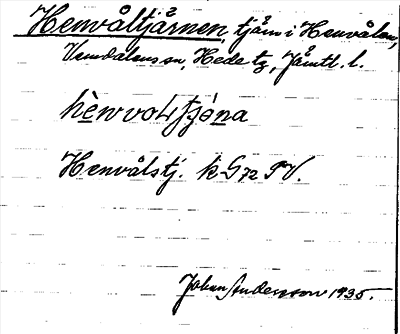 Henvåltjärnen, tjärn i Henvålen,
Vemdalens sn, Hede tg, Jämtl. l.
hènvoļtjǿna
Henvålstj. k G 72 SV.
Johan Andersson 1935.